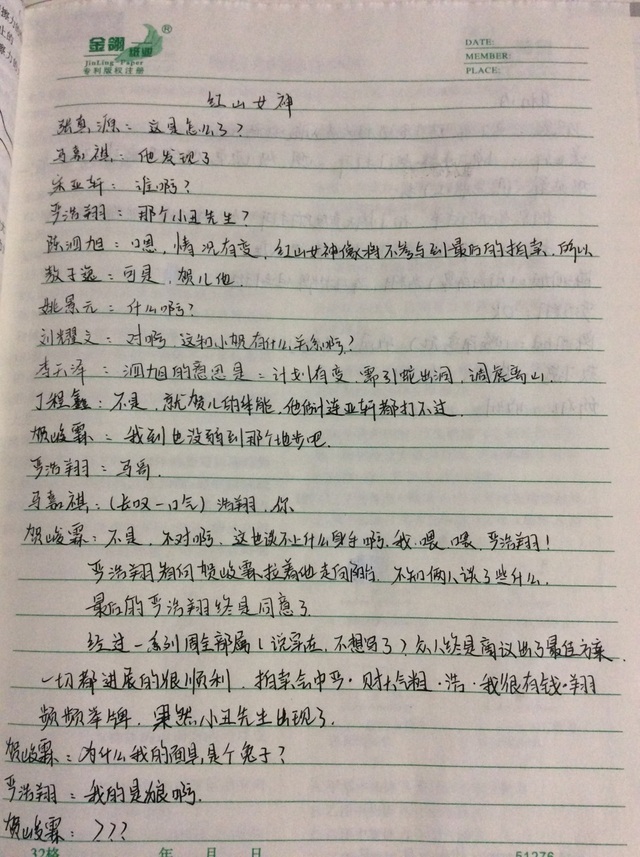 金翎纸业®
JinLing Paper
专利版权注册
DATE:
MEMBER:
PLACE:
红山女神
张真源：这是怎么了？
马嘉祺：他发现了
宋亚轩：谁啊？
严浩翔：那个小丑先生？
陈泗旭：口恩，情况有变，红山女神像将不参与到最后的拍卖，所以
敖子逸：可是，贺儿他，
姚景元：什么啊？
刘耀文：对啊，这和小贺有什么关系啊？
李天泽：泗旭的意思是：计划有变，需引蛇出洞，调虎离山，
丁程鑫：不是，就贺儿的体能，他倒连亚轩都打不过，
贺峻霖：我到也没弱到那个地步吧，
严浩翔：马哥，
马嘉祺：（长叹一口气）浩翔，你
贺峻霖：不是，不对啊，这也谈不上什么身手啊，我，喂，喂，严浩翔！
严浩翔转向贺峻霖，拉着他走向阳台，不知俩人谈了些什么，
最后的严浩翔终是同意了
经过一系列周全部属（说实在，不想写了）众人终是商议出了最佳方案，
一切都进展的很顺利，拍卖会中严·财大气粗·浩·我很有钱·翔
频频举牌，果然，小丑先生出现了，
贺峻霖：为什么我的面具是个兔子？
严浩翔：我的是狼啊，
贺峻霖：？？？
32格
年 月 日
51276